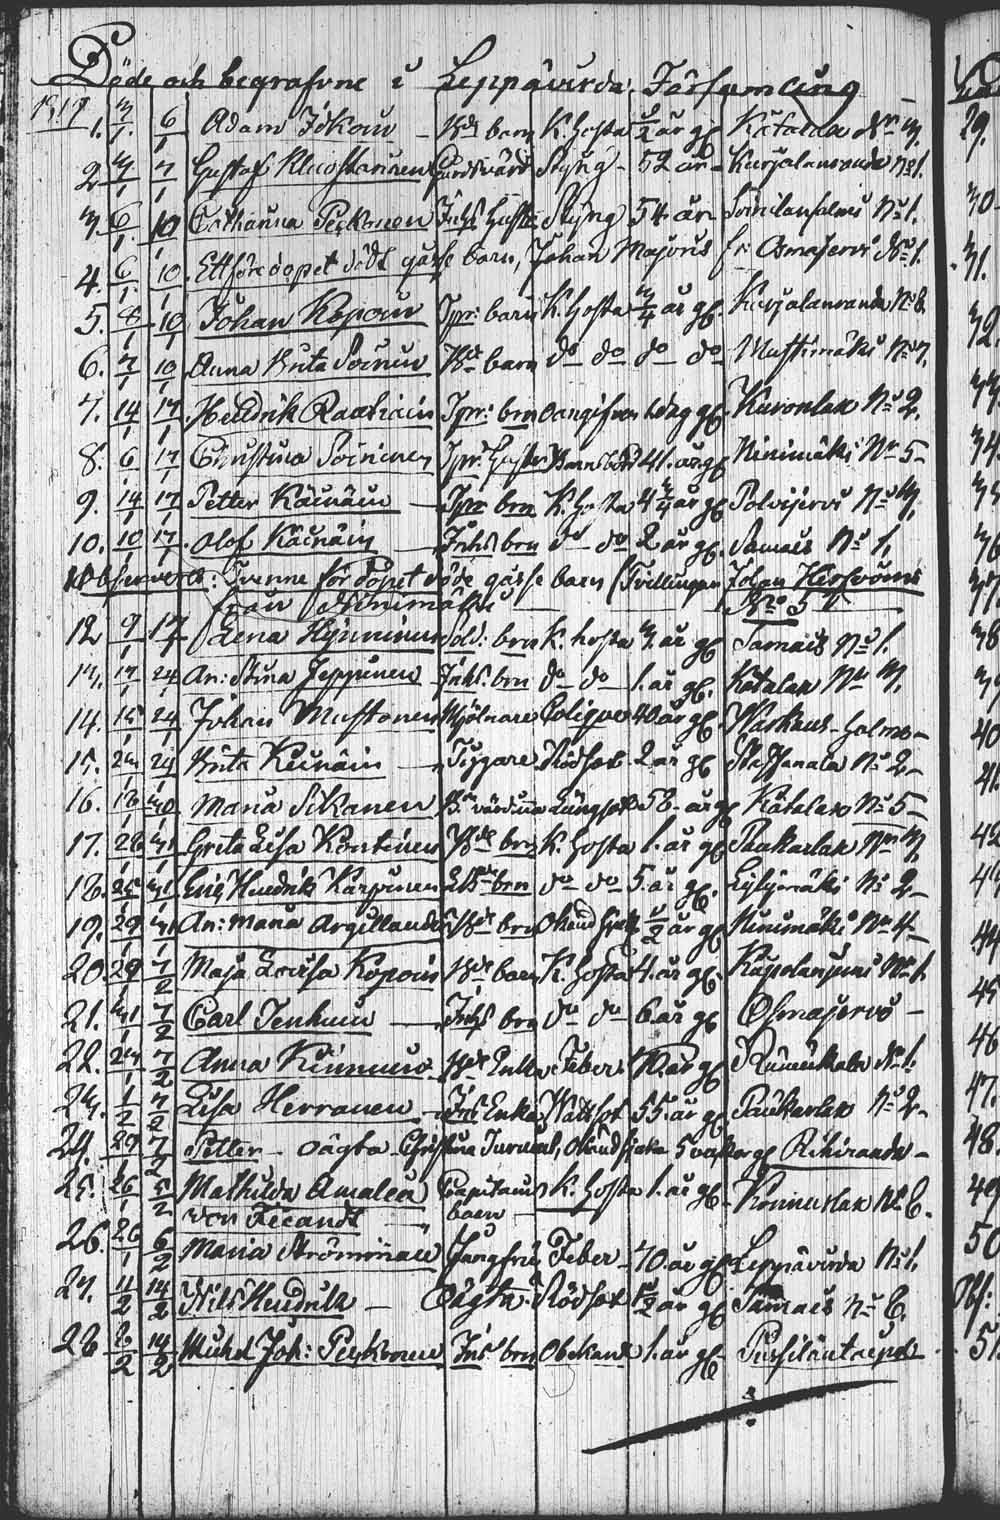 Döde och begrafvne i Leppävirda Församling
1817
1. 3/1 6/1 Adam Ikoin Bde barn K. hosta 1/2 år gl. Kotalax No 3.
2. 3/1 7/1 Gustaf Kluostarinen Gårdsvärd Styng 52 år Kurjalanranda No 1.
3. 6/1 10/1 Catharina Peckonen Inhs hustr Styng 54 år Soinilansalmi No 1.
4. 6/1 10/1 Ett före dopet dödt gåsse barn, Johan Majoris fr. Osmajervi No 1.
5. 8/1 10/1 Johan Kopoin Tpr: barn K. hosta 3/4 år gl. Kurjalanranda No 8.
6. 7/1 10/1 Anna Brita Soinin Bde barn do do do do Mustimäki No 7.
7. 14/1 17/1 Hendrik Raatikain Tpr: brn oangifven 1 dag gl. Kuronlax No 2.
8. 6/1 17/1 Christina Soininen Tpr. hustr Barnsbörd 41. år gl. Ninimäki No 5
9. 14/1 17/1 Petter Käinäin Tpr brn K. hosta 4 3/4 år gl. Polvijervi No 3.
10. 10/1 17/1 Olof Käinäin Inhs brn do do 2 år gl. Samais No 1.
11 Observera: Tvenne för döpet döde gåsse barn (Tvillingar Johan Kerströms
från Ninimäki No 5
12 9/1 17/1 Lena Hynninen Sold: brn K. hosta 3. år gl. Samais No 1.
13. 17/1 24/1 An: Stina Jeppinen Inhs. brn do do 1. år gl. Kotalax No 3.
14. 15/1 24/1 Johan Mustonen Mjölnare Colique 40 år gl. Warkaus-holmo
15. 24/1 Brita Keinäin Tiggare Rödsot 2 år gl. Staffanala No 2
16. 18/1 Maria Sikanen Bde värdinna Lungsot 58 år gl. Kotalax No 5
17. 28/1 31/1 Greta Lisa Kontinen Bde brn K. hosta 1. år gl. Paukarlax No 3
18. 25/1 31/1 Eric Hendrik Karpinen brn do do 5. år gl. No 2
19. 29/1 31/1 An: Maria Argillander Bde brn Okänd sjuk 1/2 år gl. Ninimäki No 4
20. 29/1 7/2 Maja Lovisa Kopoin Bde barn K. hosta 4. år gl. No 1.
21. 31/1 7/2 Carl Tenhuin Inhs brn do do 6 år gl. Osmajervi
22. 7/2 Anna Kinnuin Bde Enka Feber år gl. No 1.
23. 1/2 7/2 Lisa Herranen Ins Enka Wattsot 55. år gl. Paukarlax No 2
24. 29/1 7/2 Petter oägta Christina okänd sjuka 5 vekor gl
25. 26/1 5/2 Mathilda Amalia von Fieandt Capitains barn K. hosta 1. år gl. Konnuslax No 8.
26. 26/1 6/2 Maria Strömmain Jungfru Feber 70. år gl. Leppävirda No 1.
27. 11/2 14/2 Nils Hendrik Oägta Rödsot 1/2 år gl. Samais No 8.
28 8/2 14/2 Michel Joh: Peckonen Ins brn Obekant 1. år gl.
29.
30.
31.
32.
33
34.
35
36
37
38
39
40
41.
42
43
44
45
46
47.
48.
49
50
Obs:
51.